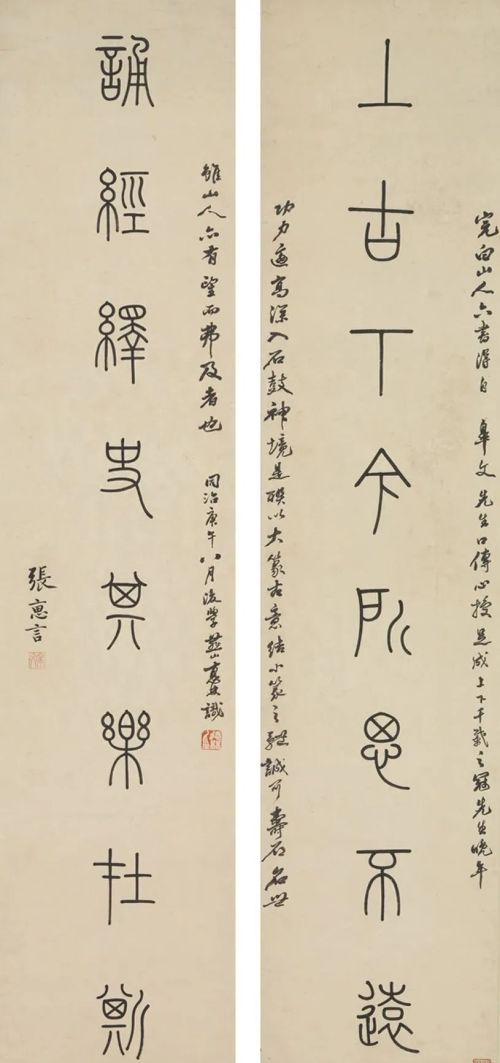 完白山人六書得自 皋文先生口傳心授是成上下千載之冠先生晚年
上古下今所思不遠
功力逾高深入石鼓神境是聯以大篆古意結小篆之體誠可壽石名世
雖山人亦有望而弗及者也 同治庚午八月後學燕山識
誦經繹史其樂在斯
張惠言